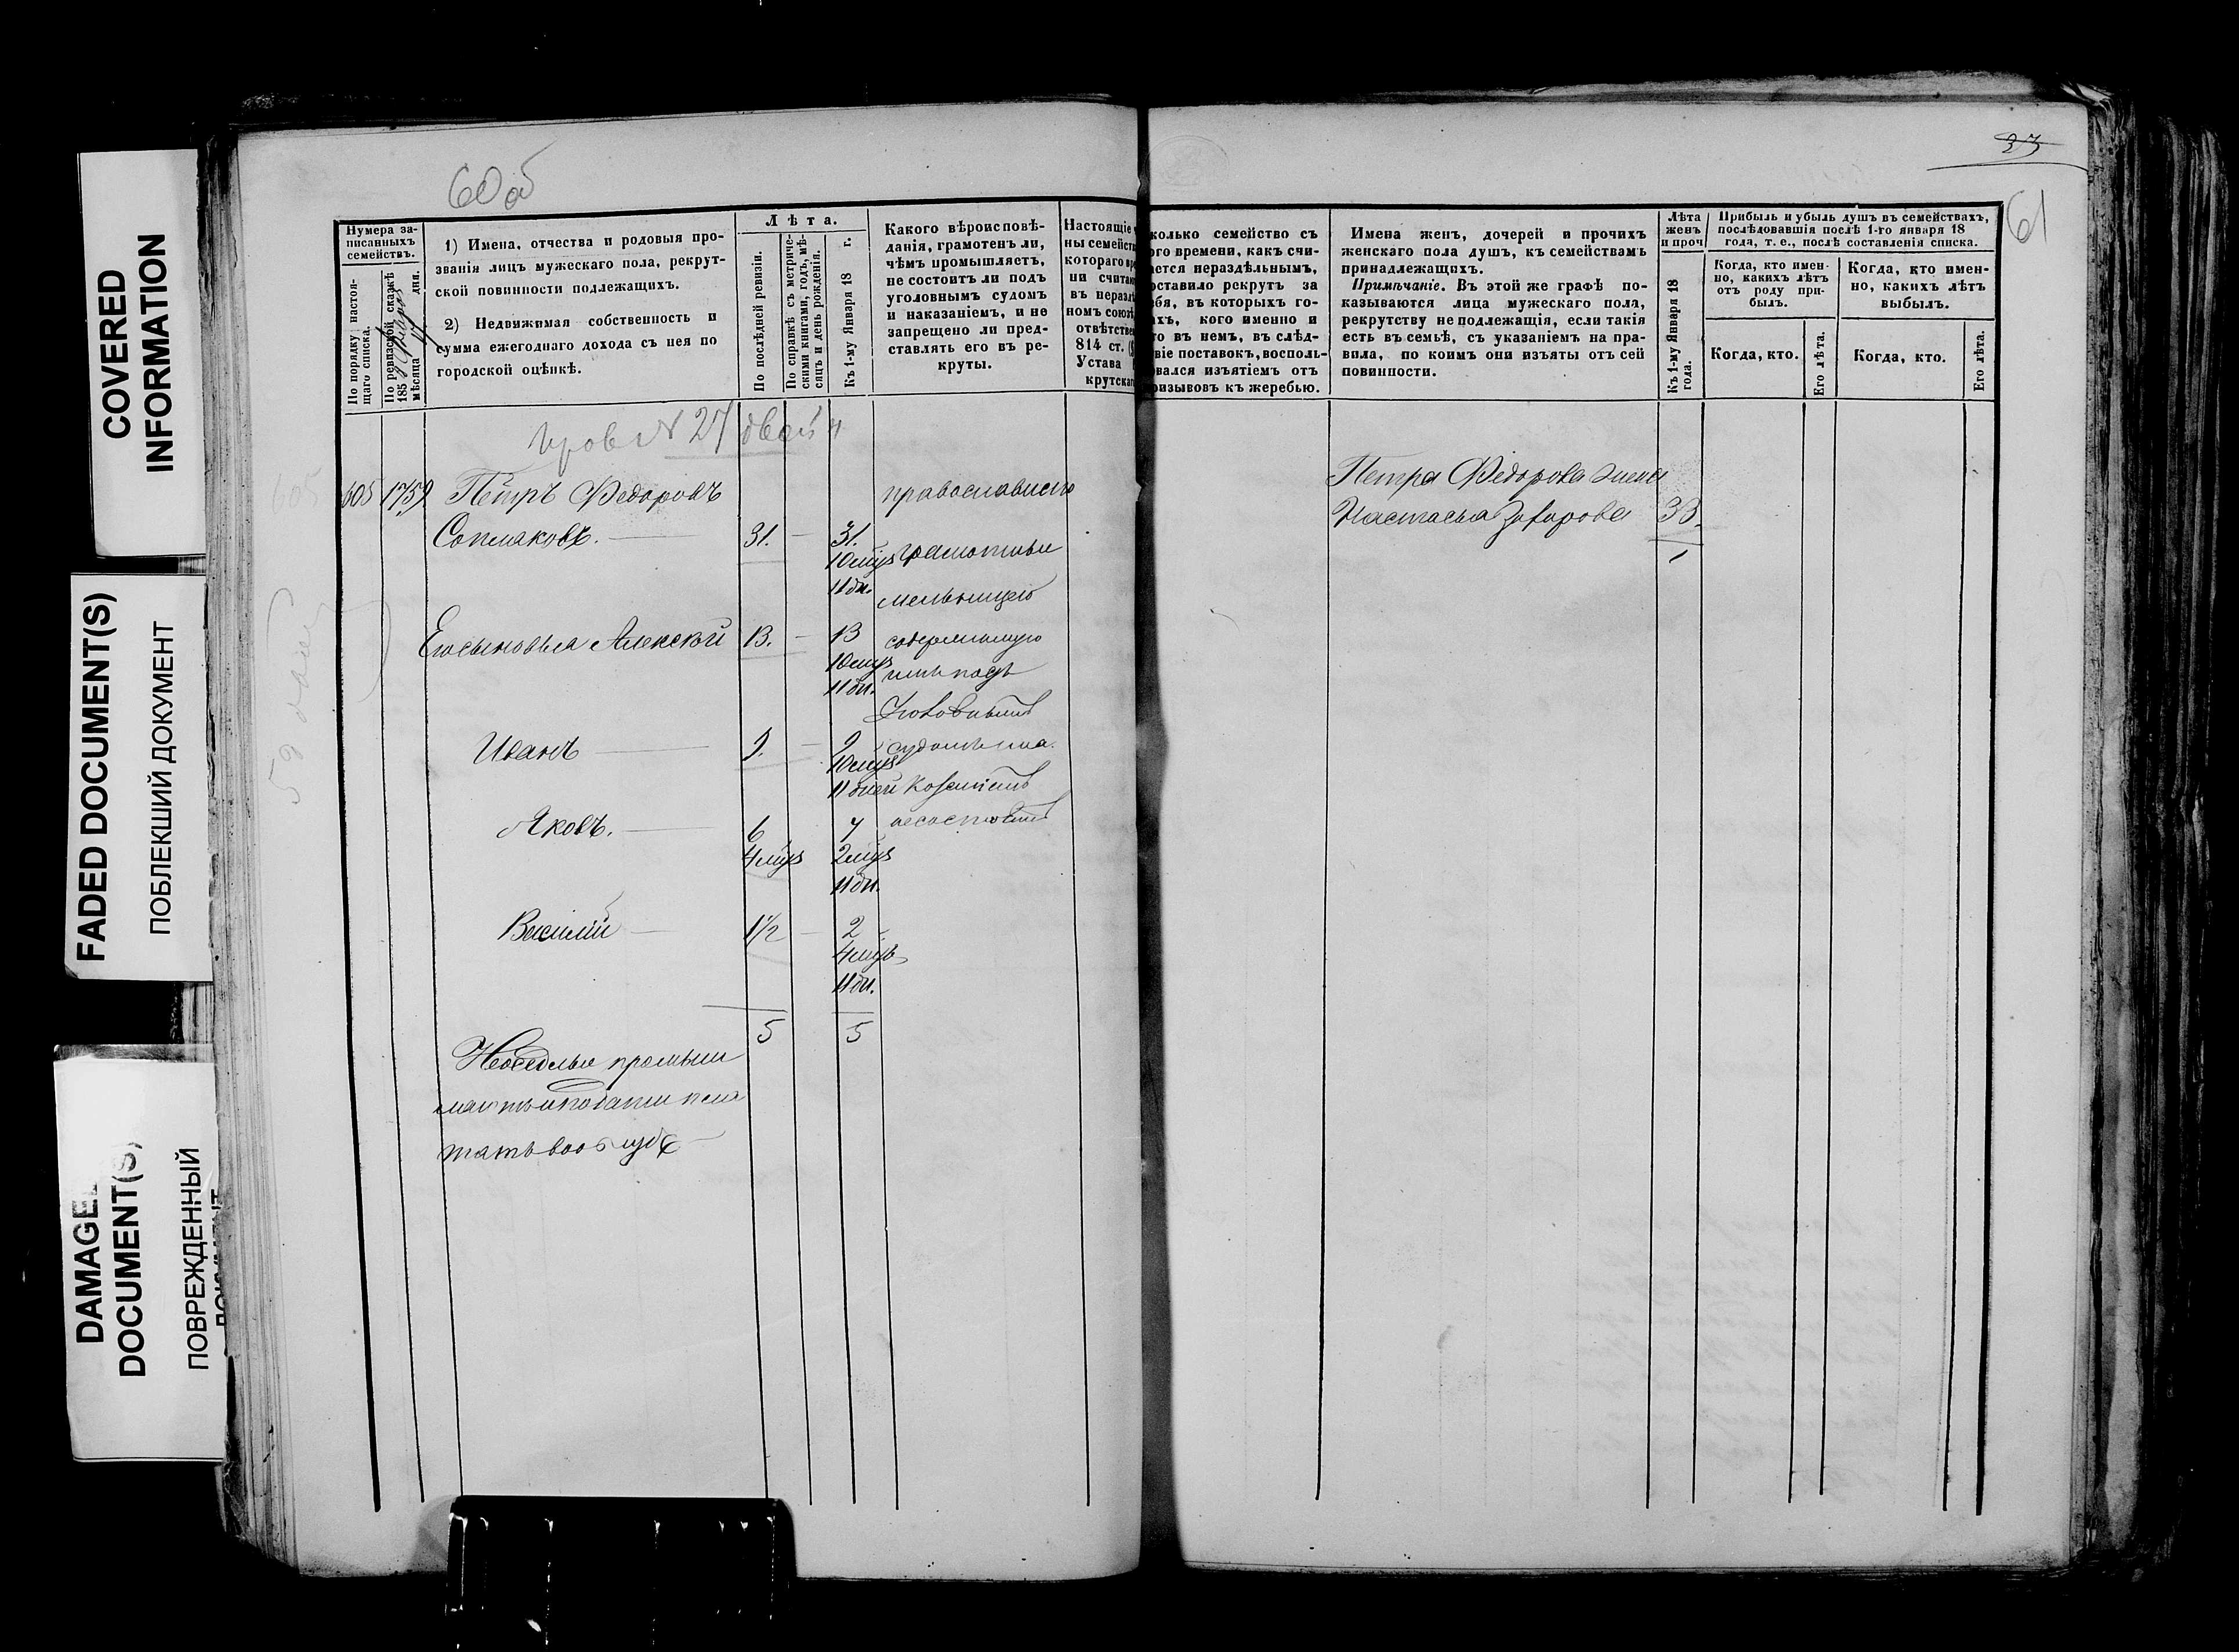 COVERED
INFORMATION
FADED DOCUMENT(S)
ПОБЛЕКШИЙ ДОКУМЕНТ
DAMAGE
DOCUMENT(S)
ПОВРЕЖДЕННЫЙ
60 об
Нумера за-
писанныхъ
семействъ.
По порядку настоя-
щаго списка.
По ревизской сказкѣ
185
мѣсяца дня.
1) Имена, отчества и родовыя про-
званія лицъ мужескаго пола, рекрут-
ской повинности подлежащихъ.
2) Недвижимая собственность и
сумма ежегоднаго дохода съ нея по
городской оцѣнкѣ.
Лѣта.
По послѣдней ревизіи.
По справкѣ съ метриче-
скими книгами, годъ, мѣ-
сяцъ и день рожденія.
Къ 1-му Января 18 г.
Какого вѣроисповѣ-
данія, грамотенъ ли,
чѣмъ промышляетъ,
не состоитъ ли подъ
уголовнымъ судомъ
и наказаніемъ, и не
запрещено ли пред-
ставлять его въ ре-
круты.
Настоящіе
ны семейст
котораго вре
ни считаю
въ неразд
номъ союзѣ,
отвѣтствен
814 ст.
Устава
крутскаг
№ 27 двой
605 1759 Пётръ Федоровъ
31. — 31.
10 мцъ
11 дн.
православнаго
грамотны
мельницею
Его сыновья Алексѣй 13. — 13
10 мцъ
11 дн.
подъ
Иванъ — 9. — 9
10 мцъ
11 дней
Яковъ. — 6
4 мцъ
7
2 мцъ
11 дн.
Василій — 1½ — 2
4 мцъ
11 дн.
5 5
23
61
колько семейство съ
ого времени, какъ счи-
ается нераздѣльнымъ,
оставило рекрутъ за
ебя, въ которыхъ го-
ахъ, кого именно и
то въ немъ, въ слѣд-
віе поставокъ, восполь-
овался изъятіемъ отъ
ризывовъ къ жеребью.
Имена женъ, дочерей и прочихъ
женскаго пола душъ, къ семействамъ
принадлежащихъ.
Примѣчаніе. Въ этой же графѣ по-
казываются лица мужескаго пола,
рекрутству не подлежащія, если такія
есть въ семьѣ, съ указаніемъ на пра-
вила, по коимъ они изъяты отъ сей
повинности.
Лѣта
женъ
и проч
Къ 1-му Января 18
года.
Прибыль и убыль душъ въ семействахъ,
послѣдовавшія послѣ 1-го января 18
года, т. е., послѣ составленія списка.
Когда, кто имен-
но, какихъ лѣтъ
отъ роду при-
былъ.
Когда, кто имен-
но, какихъ лѣтъ
выбылъ.
Когда, кто.
Его лѣта.
Когда, кто.
Его лѣта.
Петра Федорова жена
Настасья Захарова 33.
1